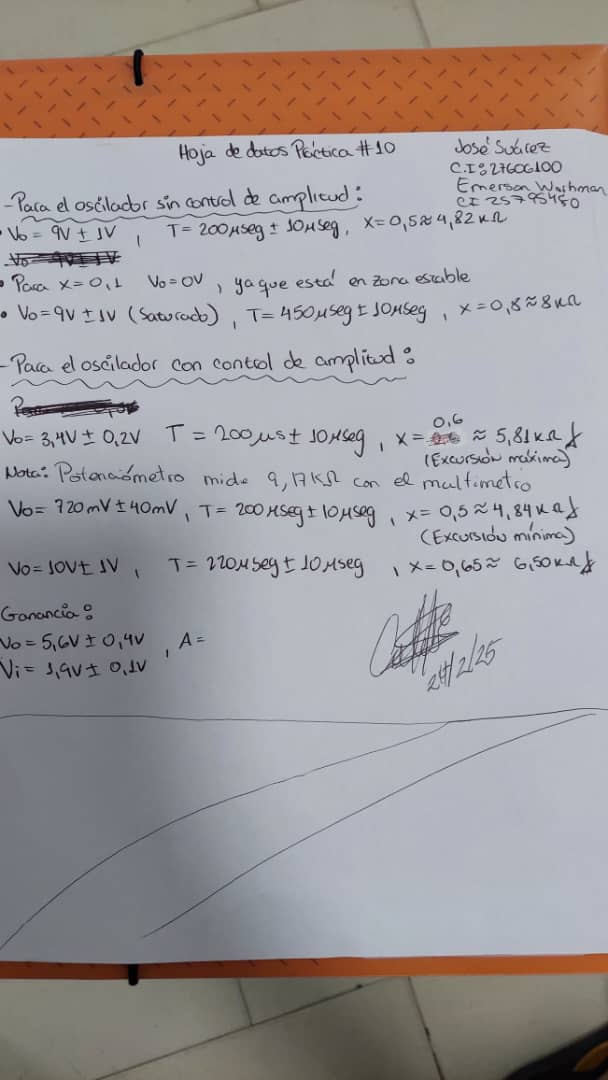 Hoja de datos Práctica #10
José Suárez
C.I: 27606100
Emerson
CI 25795450
- Para el oscilador sin control de amplitud:
• Vo = 9V ± 1V , T = 200μseg ± 10μseg, x = 0,5 ≈ 4,82 KΩ
• Para x = 0,1 Vo = 0V , ya que está en zona estable
• Vo = 9V ± 1V (Saturado) , T = 450μseg ± 10μseg , x = 0,8 ≈ 8KΩ
- Para el oscilador con control de amplitud:
Vo = 3,4V ± 0,2V T = 200μs ± 10μseg , x = 0,6 ≈ 5,81KΩ
(Excursión máxima)
Nota: Potenciómetro mide 9,17KΩ con el multímetro
Vo = 720mV ± 40mV , T = 200μseg ± 10μseg , x = 0,5 ≈ 4,84KΩ
(Excursión mínima)
Vo = 10V ± 1V , T = 220μseg ± 10μseg , x = 0,65 ≈ 6,50KΩ
Ganancia:
Vo = 5,6V ± 0,4V , A =
Vi = 1,9V ± 0,1V
24/2/25